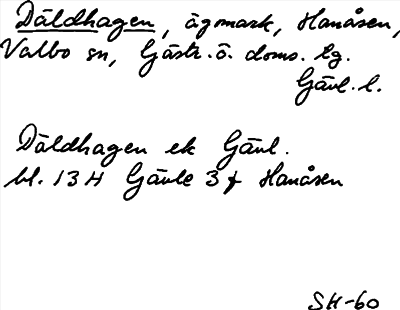 Däldhagen, ägomark, Hanåsen,
Valbo sn, Gästr. ö. doms. tg.
Gävl. l.
Däldhagen ek Gävl.
bl. 13 H Gävle 3 f Hanåsen
SH-60